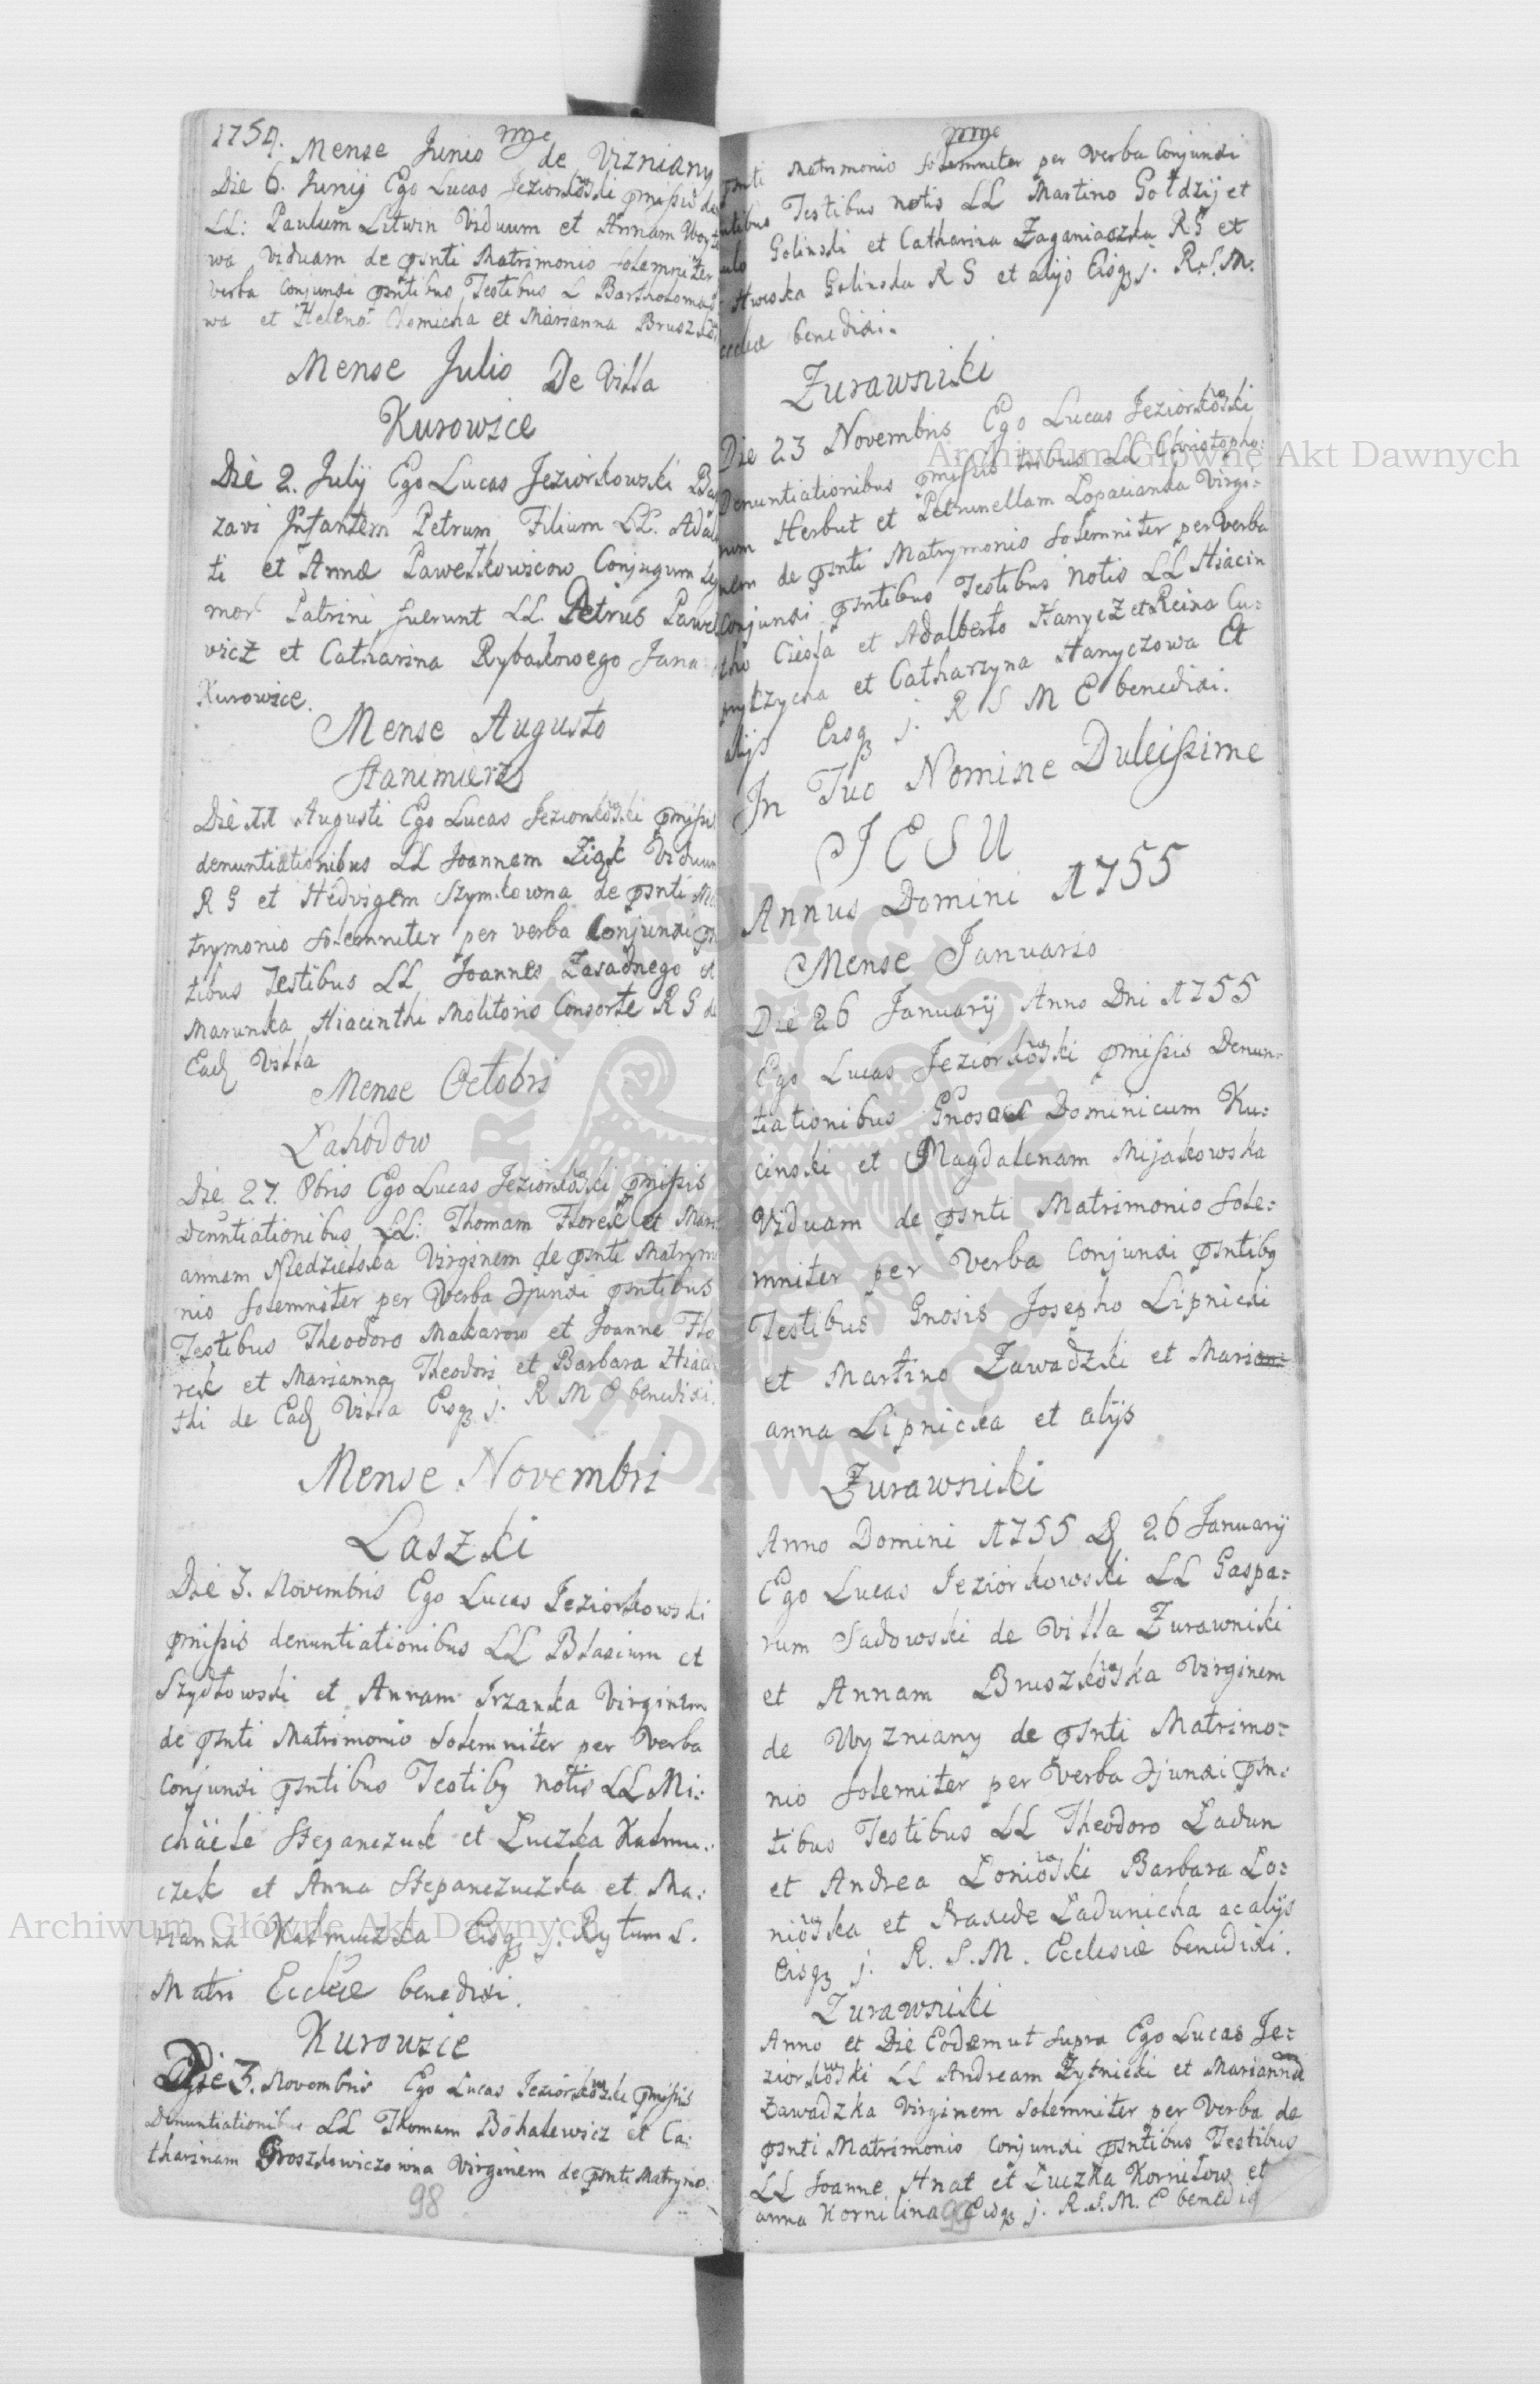 1754. Mense Junio de Vizniany
Die 6. Junij Ego Lucas Jeziorkowski pmissis de
LL: Paulum Litwin Viduum et Annam Woyto
wa Viduam de psnti Matrimonio solemniter
verba conjunxi psntibus Testibus L Bartholomaeo
wa et Helena Chomicha et Marianna Bruszko
Mense Julio De Villa
Kurowice
Die 2. Julij Ego Lucas Jeziorkowski Bap
zavi Infantem Petrum, Filium LL. Adal
ti et Annæ Pawelkowicow Conjugum Leg
mor Patrini fuerunt LL. Petrus Pawel
vicz et Catharina Rybakowego Jana
Kurowice.
Mense Augusto
Hanimierz
Die 11 Augusti Ego Lucas Jeziorkowski pmissis
denuntiationibus LL Joannem Ziąk Viduum
R G et Hedvigem Szymkowna de psnti Ma
trymonio solemniter per verba Conjunxi ps
tibus Testibus LL Joannes Zasadnego et
Marunka Hiacinthi Molitoris Consorte R G de
Ead Villa
Mense Octobri
Lahodow
Die 27. 8bris Ego Lucas Jeziorkowski pmissis
Denuntiationibus LL: Thomam Florek et Mari
annam Niedzielska Virginem de psnti Matrymo
nio solemniter per Verba Cjunxi psntibus
Testibus Theodoro Makarow et Joanne Flo
rek et Marianna Theodori et Barbara Hiacin
thi de Ead Villa Eisq j. R M E benedixi.
Mense Novembri
Laszki
Die 3. Novembris Ego Lucas Jeziorkowski
pmissis denuntiationibus LL Blasium et
Szydlowski et Annam Irzanka Virginem
de psnti Matrimonio Solemniter per Verba
conjunxi psntibus Testibq notis LL Mi:
chäele Stepanczuk et Luczka Kalmu:
czek et Anna Stepanczuczka et Ma:
rianna Kalmuczka Eisq j. Rytum S.
Matri Ecclæ benedixi.
Kurowice
Die 3. Novembris Ego Lucas Jeziorkowski pmissis
Denuntiationibus LL Thomam Bohalewicz et Ca:
tharinam Proszkowiczowna Virginem de psnti Matrymo:
98
psnti Matrimonio Solemniter per Verba Conjunxi
ntibus Testibus notis LL Martino Goldzij et
Golinski et Catharina Zaganiaczka RG et
Hwoska Golinska R G et alijs Eisq j. R. S. M.
cclæ benedixi.
Zurawniki
Die 23 Novembris Ego Lucas Jeziorkowski
Denuntiationibus pmissis tribus LL Christopho:
rum Herbut et Petrunellam Lopacianka Virgi:
nem de psnti Matrymonio solemniter per Verba
Conjunxi psntibus Testibus Notis LL Hiacin
tho Ciesla et Adalberto Hanycz et Reina Cu:
prykzycha et Catharzyna Hanyczowa Et
alijs Eisq j. R S M E benedixi.
In Tuo Nomine Dulcissime
JESU
Annus Domini 1755
Mense Januario
Die 26 Januarij Anno Dni 1755
Ego Lucas Jeziorkowski pmissis Denun:
tiationibus Gnosos Dominicum Ku:
cinski et Magdalenam Mijakowska
Viduam de psnti Matrimonio Sole:
mniter per Verba conjunxi psntibq
Testibus Gnosis Josepho Lipnicki
et Martino Zawadzki et Marian
anna Lipnicka et alijs
Zurawniki
Anno Domini 1755 D 26 Januarij
Ego Lucas Jeziorkowski LL Gaspa:
rum Sadowski de Villa Zurawniki
et Annam Bruszkowska Virginem
de Wyzniany de psnti Matrimo:
nio solemiter per Verba Cjunxi psn:
tibus Testibus LL Theodoro Ladun
et Andrea Loniowski Barbara Lo:
niowska et Praxede Ladunicha ac alijs
Eisq j. R. S. M. Ecclesiæ benedixi.
Zurawniki
Anno et Die Eodem ut supra Ego Lucas Je:
ziorkowski LL Andream Zytnicki et Marianna
Zawadzka Virginem solemniter per Verba de
psnti Matrimonio conjunxi psntibus Testibus
LL Joanne Hnat et Luczka Kornilow et
anna Kornilina Eisq j. R. S. M. E benedix
99
Archiwum Główne Akt Dawnych
Archiwum Główne Akt Dawnych
ARCHIWUM GŁÓWNE AKT DAWNYCH